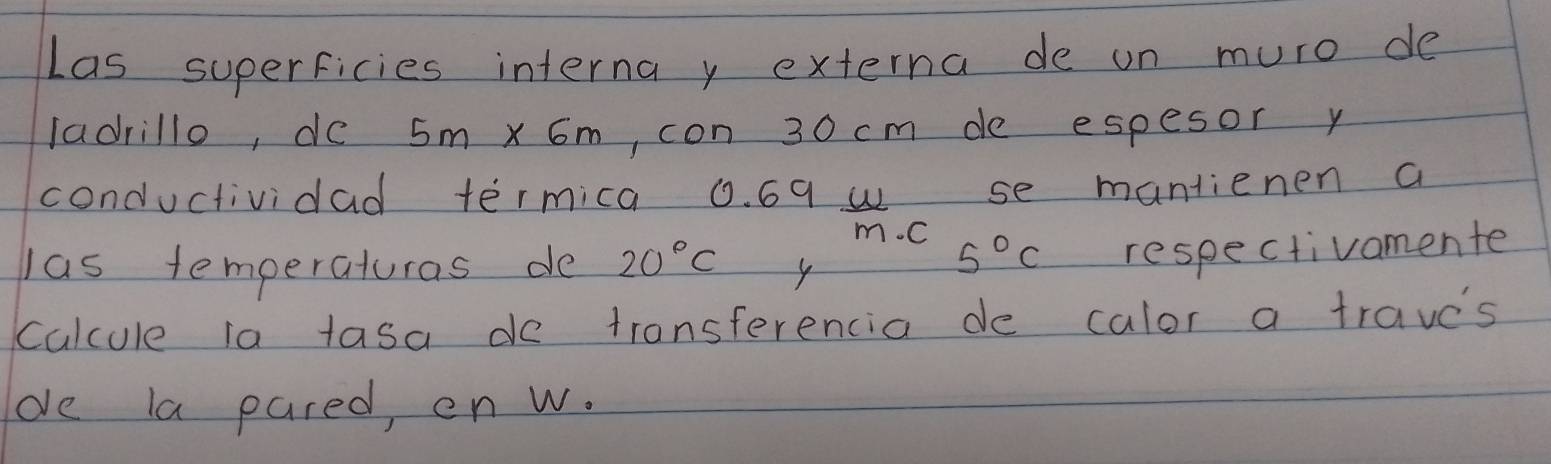 Las superficies interna y externa de un muro de
ladrillo, de 5m x 6m, con 30 cm de espesor y
conductividad térmica 0.69 w/m.c se mantienen a
las temperaturas de 20°C y 5°C respectivamente
calcule la tasa de transferencia de calor a través
de la pared, en W.